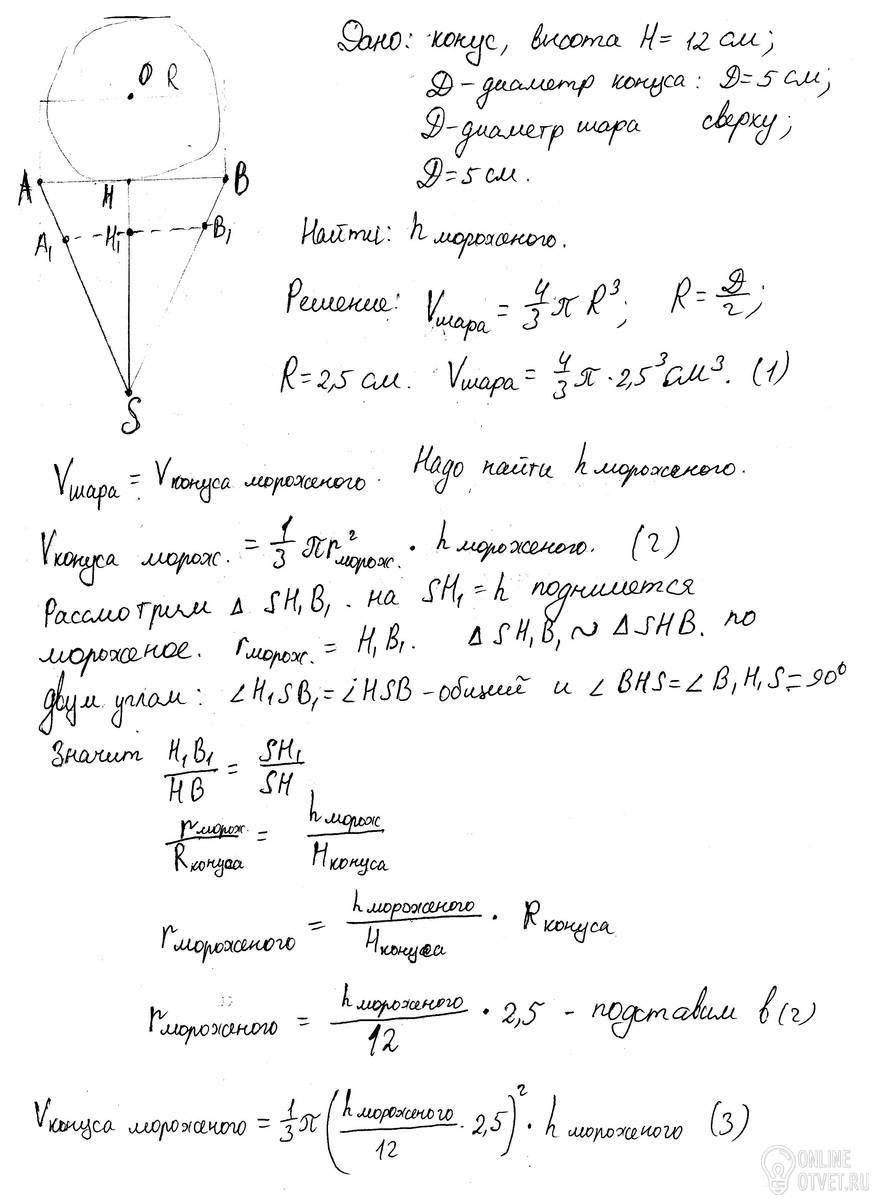 Дано: конус, высота H = 12 см;
D - диаметр конуса: D = 5 см;
D - диаметр шара сверху;
D = 5 см.
O R
A H B
A₁ H₁ B₁
S
Найти: h мороженого.
Решение: Vшара = 4/3 π R³; R = D/2;
R = 2,5 см. Vшара = 4/3 π · 2,5³ см³. (1)
Vшара = Vконуса мороженого. Надо найти h мороженого.
Vконуса морож. = 1/3 π r²морож. · h мороженого. (2)
Рассмотрим Δ SH₁B₁. на SH₁ = h поднимется
мороженое. rморож. = H₁B₁. Δ SH₁B₁ ~ Δ SHB. по
двум углам: ∠H₁SB₁ = ∠HSB - общий и ∠BHS = ∠B₁H₁S = 90°
Значит H₁B₁/HB = SH₁/SH
rморож./Rконуса = hморож/Hконуса
rмороженого = hмороженого/Hконуса · Rконуса
rмороженого = hмороженого/12 · 2,5 - подставим в (2)
Vконуса мороженого = 1/3 π (hмороженого/12 · 2,5)² · h мороженого (3)
ONLINE
OTVET.RU